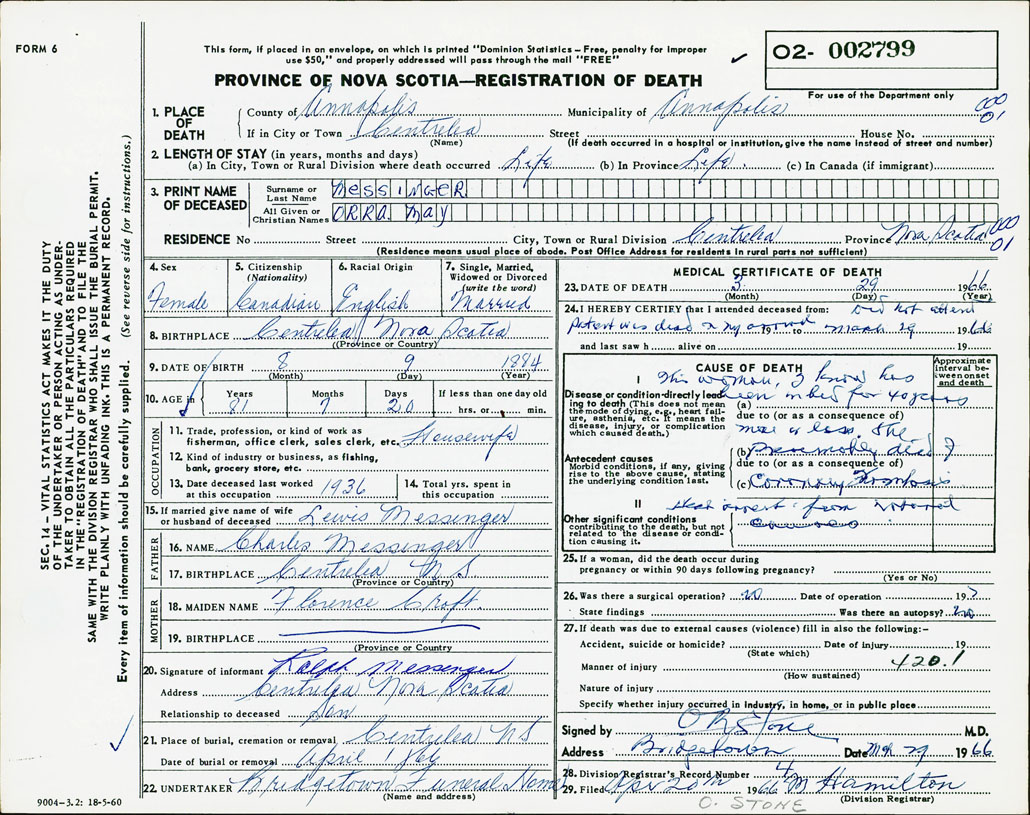 FORM 6
This form, if placed in an envelope, on which is printed "Dominion Statistics – Free, penalty for improper
use $50," and properly addressed will pass through the mail "FREE"
PROVINCE OF NOVA SCOTIA—REGISTRATION OF DEATH
O2- 002799
For use of the Department only
SEC. 14 – VITAL STATISTICS ACT MAKES IT THE DUTY
OF THE UNDERTAKER OR PERSON ACTING AS UNDER-
TAKER TO OBTAIN ALL THE PARTICULARS REQUIRED
IN THE "REGISTRATION OF DEATH" AND TO FILE THE
SAME WITH THE DIVISION REGISTRAR WHO SHALL ISSUE THE BURIAL PERMIT.
WRITE PLAINLY WITH UNFADING INK. THIS IS A PERMANENT RECORD.
Every item of information should be carefully supplied. (See reverse side for instructions.)
1. PLACE OF DEATH
County of Annapolis Municipality of Annapolis 000 01
If in City or Town Centrelea Street House No.
(Name) (If death occurred in a hospital or institution, give the name instead of street and number)
2. LENGTH OF STAY (in years, months and days)
(a) In City, Town or Rural Division where death occurred Life (b) In Province Life (c) In Canada (if immigrant)
3. PRINT NAME OF DECEASED
Surname or Last Name MESSINGER
All Given or Christian Names ORRA MAY
RESIDENCE No Street City, Town or Rural Division Centrelea Province Nova Scotia 000 01
(Residence means usual place of abode. Post Office Address for residents in rural parts not sufficient)
4. Sex Female
5. Citizenship (Nationality) Canadian
6. Racial Origin English
7. Single, Married, Widowed or Divorced (write the word) Married
8. BIRTHPLACE Centrelea Nova Scotia
(Province or Country)
9. DATE OF BIRTH 8 9 1884
(Month) (Day) (Year)
10. AGE in Years 81 Months 7 Days 20 If less than one day old hrs. or min.
OCCUPATION
11. Trade, profession, or kind of work as
fisherman, office clerk, sales clerk, etc. Housewife
12. Kind of industry or business, as fishing,
bank, grocery store, etc.
13. Date deceased last worked at this occupation 1936
14. Total yrs. spent in this occupation
15. If married give name of wife or husband of deceased Lewis Messenger
FATHER
16. NAME Charles Messenger
17. BIRTHPLACE Centrelea N S
(Province or Country)
MOTHER
18. MAIDEN NAME Florence Croft
19. BIRTHPLACE
(Province or Country)
20. Signature of informant Ralph Messenger
Address Centrelea Nova Scotia
Relationship to deceased Son
21. Place of burial, cremation or removal Centrelea NS
Date of burial or removal April 1
22. UNDERTAKER Bridgetown Funeral Home
(Name and address)
9004–3.2: 18-5-60
MEDICAL CERTIFICATE OF DEATH
23. DATE OF DEATH 3 29 1966
(Month) (Day) (Year)
24. I HEREBY CERTIFY that I attended deceased from: Did not attend
patient was dead on my arrival 19 to March 29 1966
and last saw h alive on 19
CAUSE OF DEATH
Approximate interval between onset and death
I This woman, I know has
Disease or condition directly leading to death (This does not mean the mode of dying, e.g., heart failure, asthenia, etc. It means the disease, injury, or complication which caused death.)
(a) been in bed for 40 years
due to (or as a consequence of)
more or less. She
(b) Presumably died of
Antecedent causes
Morbid conditions, if any, giving rise to the above cause, stating the underlying condition last.
due to (or as a consequence of)
(c) Coronary Thrombosis
II
Other significant conditions contributing to the death, but not related to the disease or condition causing it.
Heart arrest from natural
causes
25. If a woman, did the death occur during
pregnancy or within 90 days following pregnancy?
(Yes or No)
26. Was there a surgical operation? no Date of operation 19
State findings Was there an autopsy? no
27. If death was due to external causes (violence) fill in also the following:–
Accident, suicide or homicide? Date of injury 19
(State which)
Manner of injury 420.1
(How sustained)
Nature of injury
Specify whether injury occurred in Industry, in home, or in public place
Signed by O R Stone M.D.
Address Bridgetown Date Mch 29 1966
28. Division Registrar's Record Number 4
29. Filed Apr 20th 1966 M Hamilton
(Division Registrar)
O. STONE